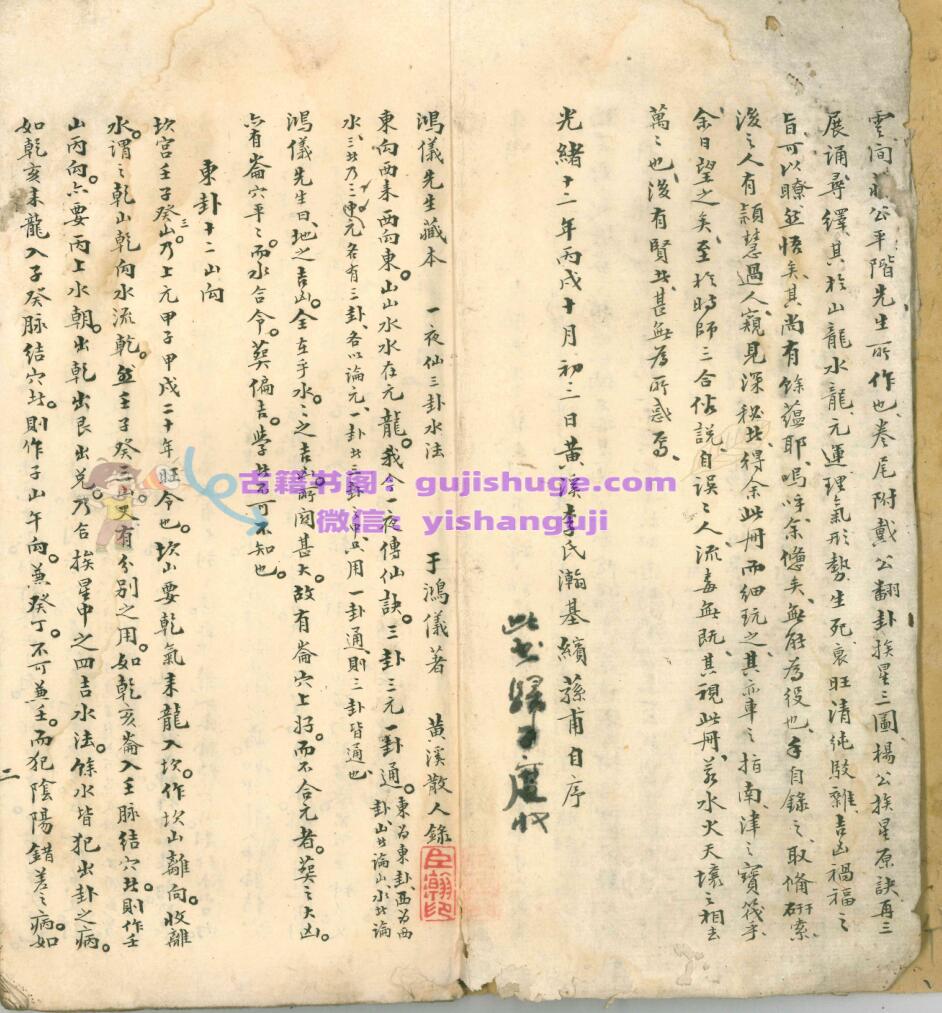 雲間蔣公平階先生所作也、卷尾附戴公翻卦挨星三圖、楊公挨星原訣、再三
展誦、尋繹其於山龍水龍、元運理氣形勢、生死衰旺、清純駁雜、吉凶禍福之
旨、可以瞭然悟矣、其尚有餘蘊耶、嗚呼、余憊矣、無能為役也、手自錄之、取備研索、
後之人有穎慧過人、窺見深秘者、得余此冊而細玩之、其亦車之指南、津之寶筏乎、
余日望之矣、至於時師三合俗說、自誤誤人、流毒無既、其視此冊、若水火天壤之相去
萬萬也、後有賢者、甚無為所惑焉、
光緒十二年丙戌十月初三日黃溪李氏瀚基纘蓀甫自序
此書歸子度收
鴻儀先生藏本 一夜仙三卦水法 于鴻儀著 黃溪散人錄
臣瀚印
東向西來西向東。山山水水在元龍。我今一夜傳仙訣。三卦三元一卦通。東為東卦、西為西
卦、山者論山、水者論
水、三者乃三元、各有三卦、各以論元、一卦者三卦中只用一卦通、則三卦皆通也、
鴻儀先生曰、地之吉凶。全在乎水。水之吉凶所関甚大。故有崙穴上好。而不合元者。葬之大凶。
亦有崙穴平平。而水合令。葬偏吉。學者不可不知也。
東卦十二山向
坎宮壬子癸三山。乃上元甲子甲戌二十年旺令也。坎山要乾氣來龍入坎。作坎山離向。收離
水。謂之乾山乾向水流乾。然壬子癸三山。又有分別之用。如乾亥崙入壬脉結穴者。則作壬
山丙向。亦要丙上水朝。出乾出艮出兌。乃合挨星中之四吉水法。餘水皆犯出卦之病。
如乾亥來龍入子癸脉結穴者。則作子山午向。兼癸丁。不可兼壬。而犯陰陽錯差之病。如
二
古籍书阁: gujishuge.com
微信: yishanguji